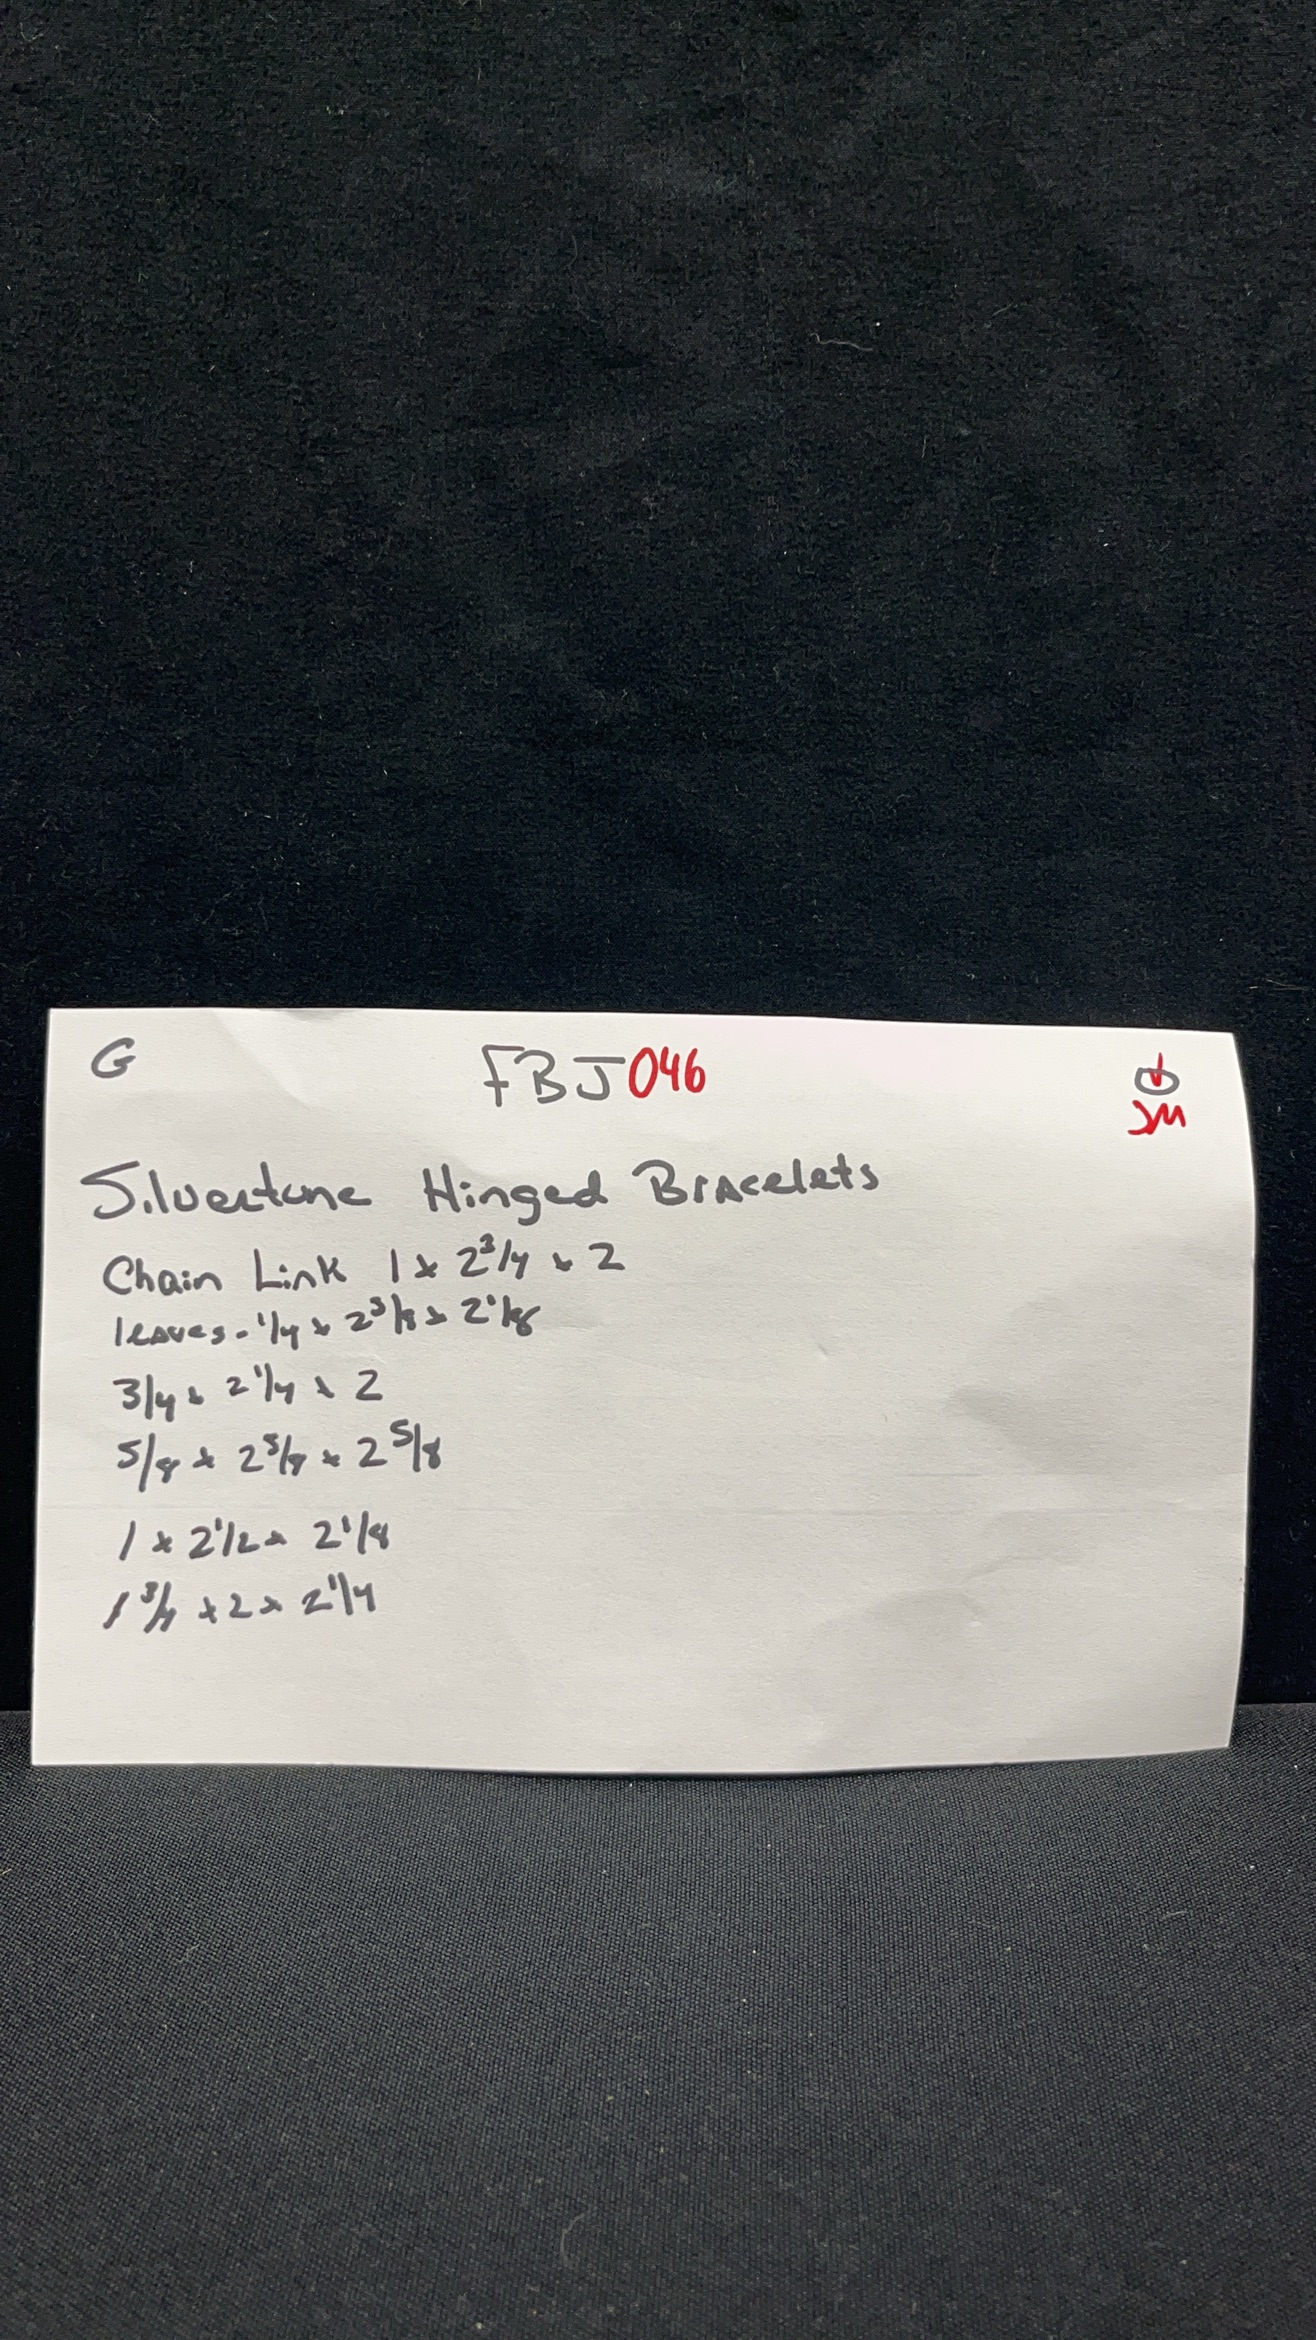 G FBJ046
JM
Silvertone Hinged Bracelets
Chain Link 1 x 2 3/4 x 2
leaves - 1/4 x 2 3/8 x 2 1/8
3/4 x 2 1/4 x 2
5/8 x 2 5/8 x 2 5/8
1 x 2 1/2 x 2 1/8
1 3/4 x 2 x 2 1/4